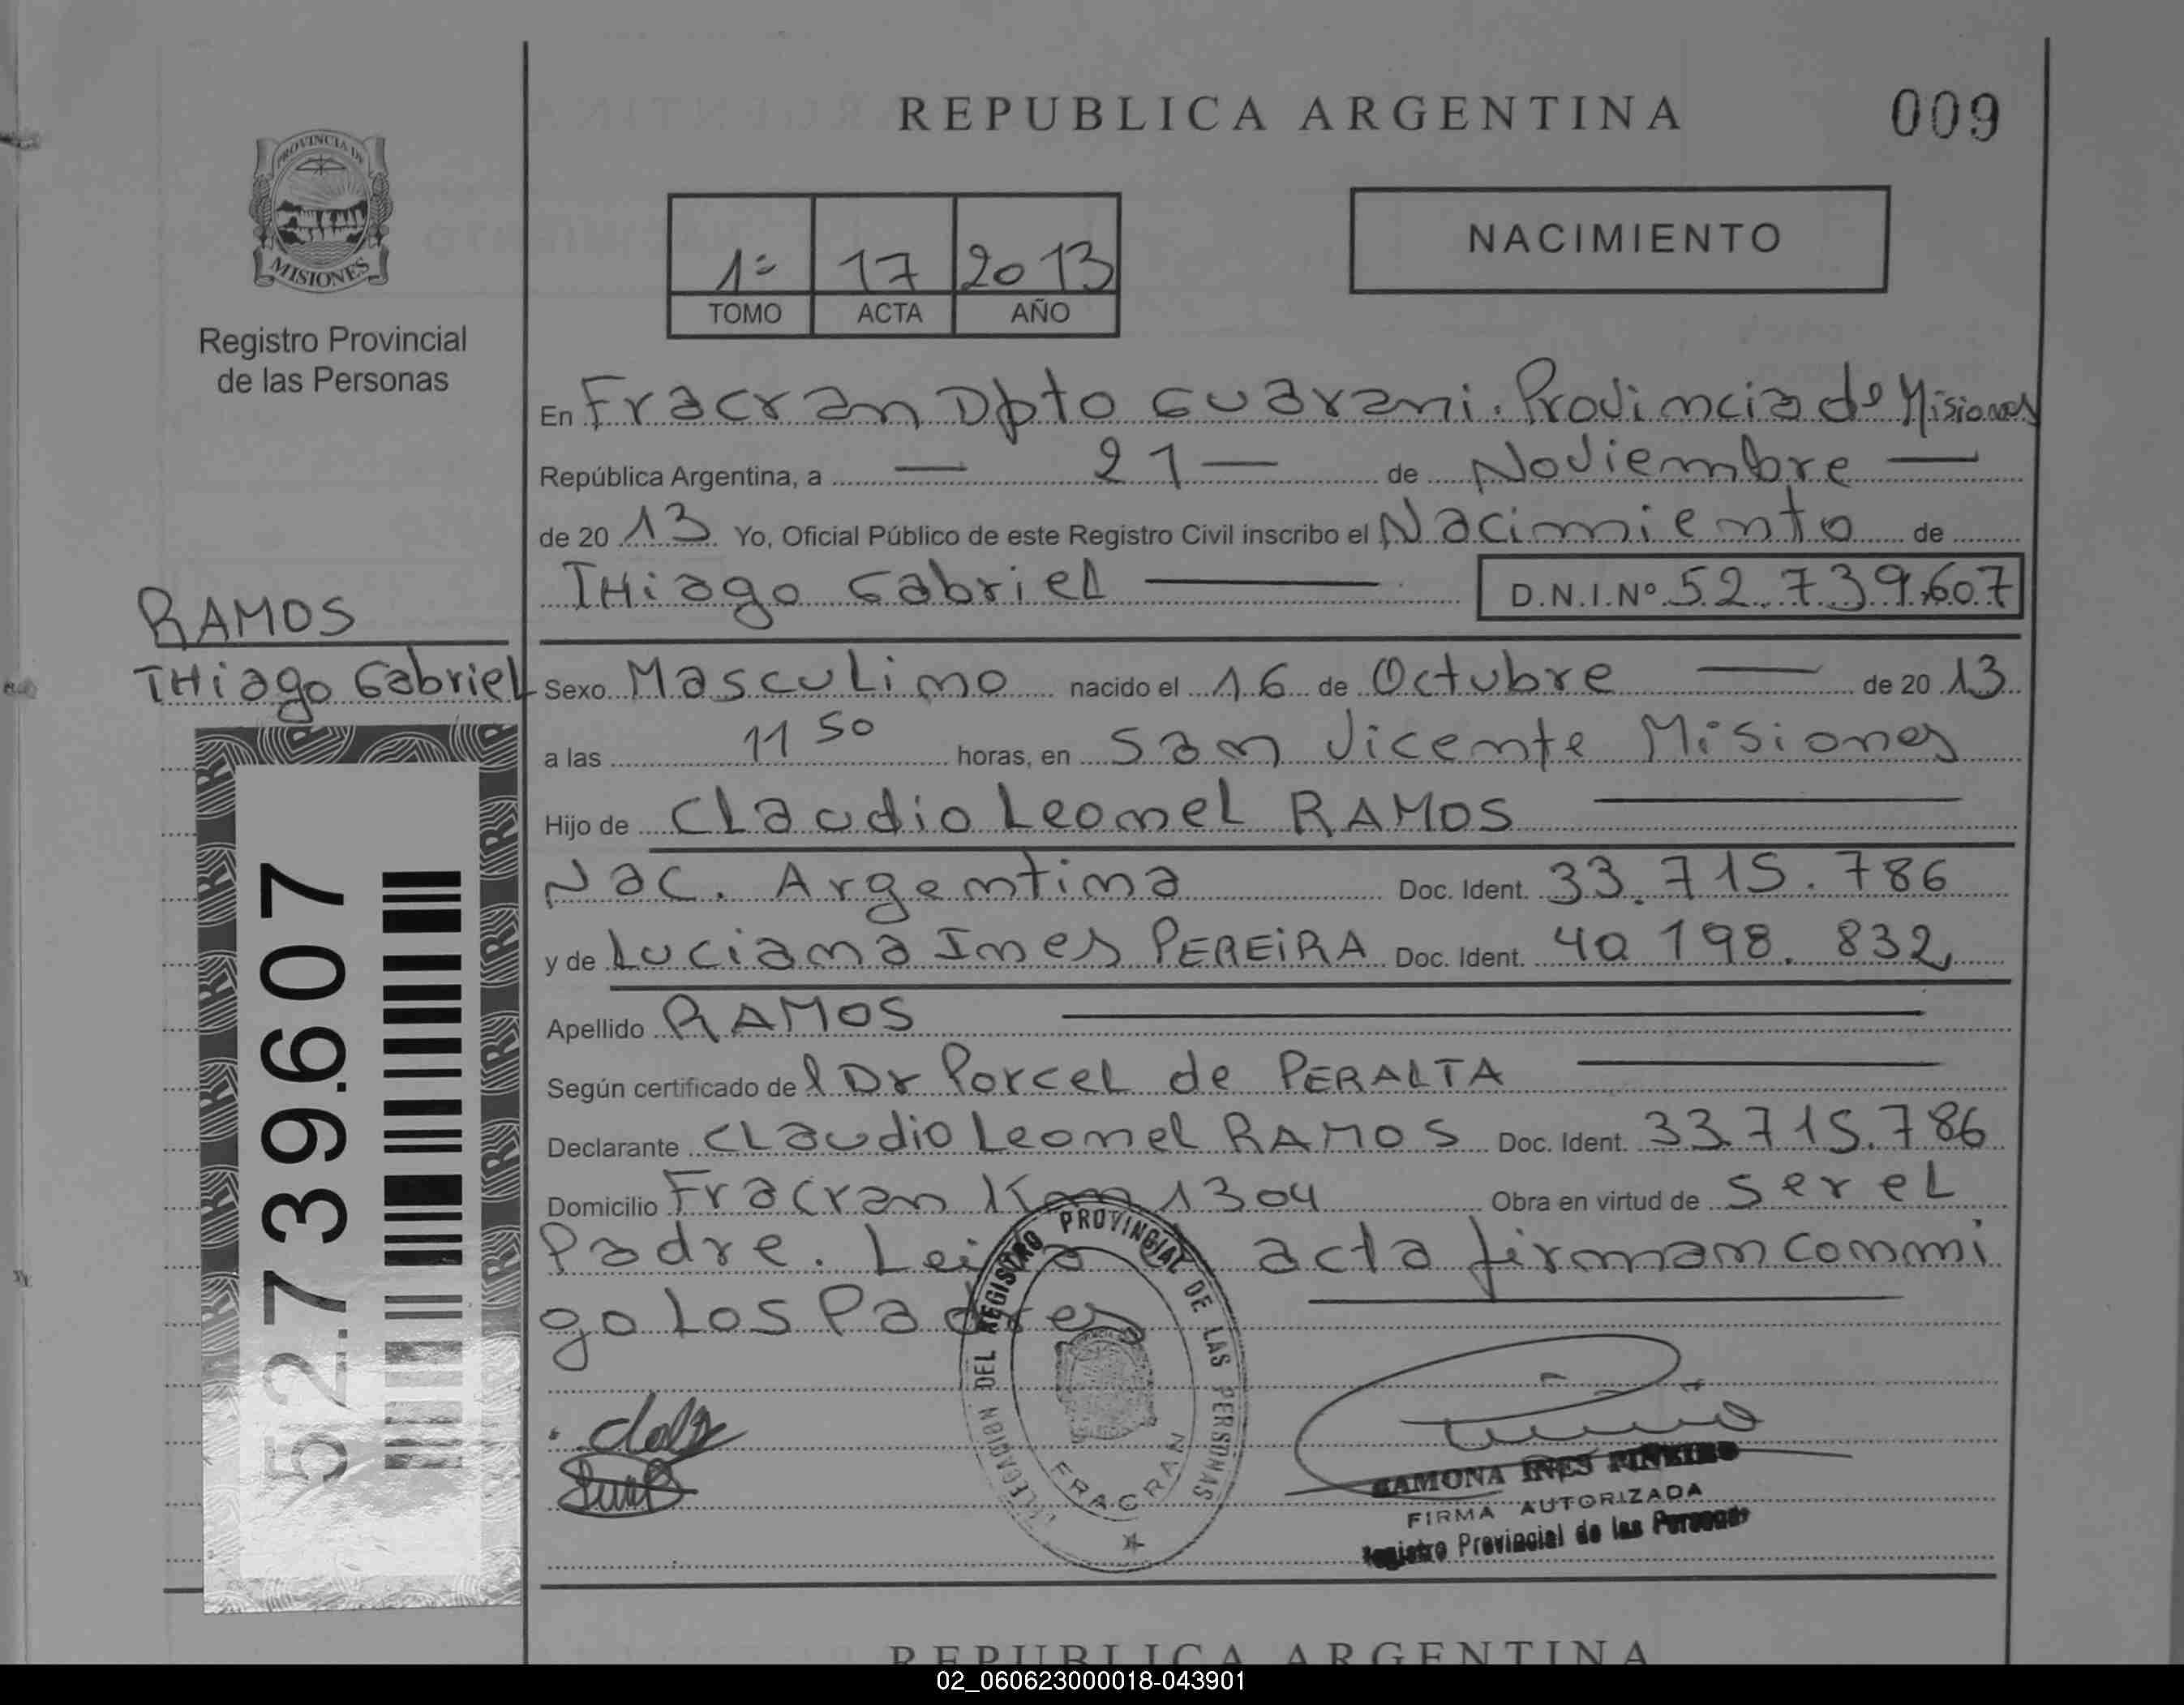 REPUBLICA ARGENTINA
009
PROVINCIA DE
MISIONES
Registro Provincial
de las Personas
1º 17 2013
TOMO ACTA AÑO
NACIMIENTO
En Fracran Dpto Guarani. Provincia de Misiones
República Argentina, a — 21 — de Noviembre —
de 20 13 Yo, Oficial Público de este Registro Civil inscribo el Nacimiento de
THiago Gabriel D.N.I.Nº 52.739.607
RAMOS
THiago Gabriel
Sexo Masculino nacido el 16 de Octubre — de 20 13
a las 11 50 horas, en San Vicente Misiones
Hijo de Claudio Leonel RAMOS
Nac. Argentina Doc. Ident. 33.715.786
y de Luciana Ines PEREiRA Doc. Ident. 40 198. 832
Apellido RAMOS
Según certificado de l Dr Porcel de PERALTA
Declarante Claudio Leonel RAMOS Doc. Ident. 33.715.786
Domicilio Fracran Km 1304 Obra en virtud de ser el
Padre. Leida el acta firman conmi
go Los Padres
52.739.607
DELEGACION DEL REGISTRO PROVINCIAL DE LAS PERSONAS
FRACRAN
RAMONA INES PIÑEIRO
FIRMA AUTORIZADA
Registro Provincial de las Personas
REPUBLICA ARGENTINA
02_060623000018-043901